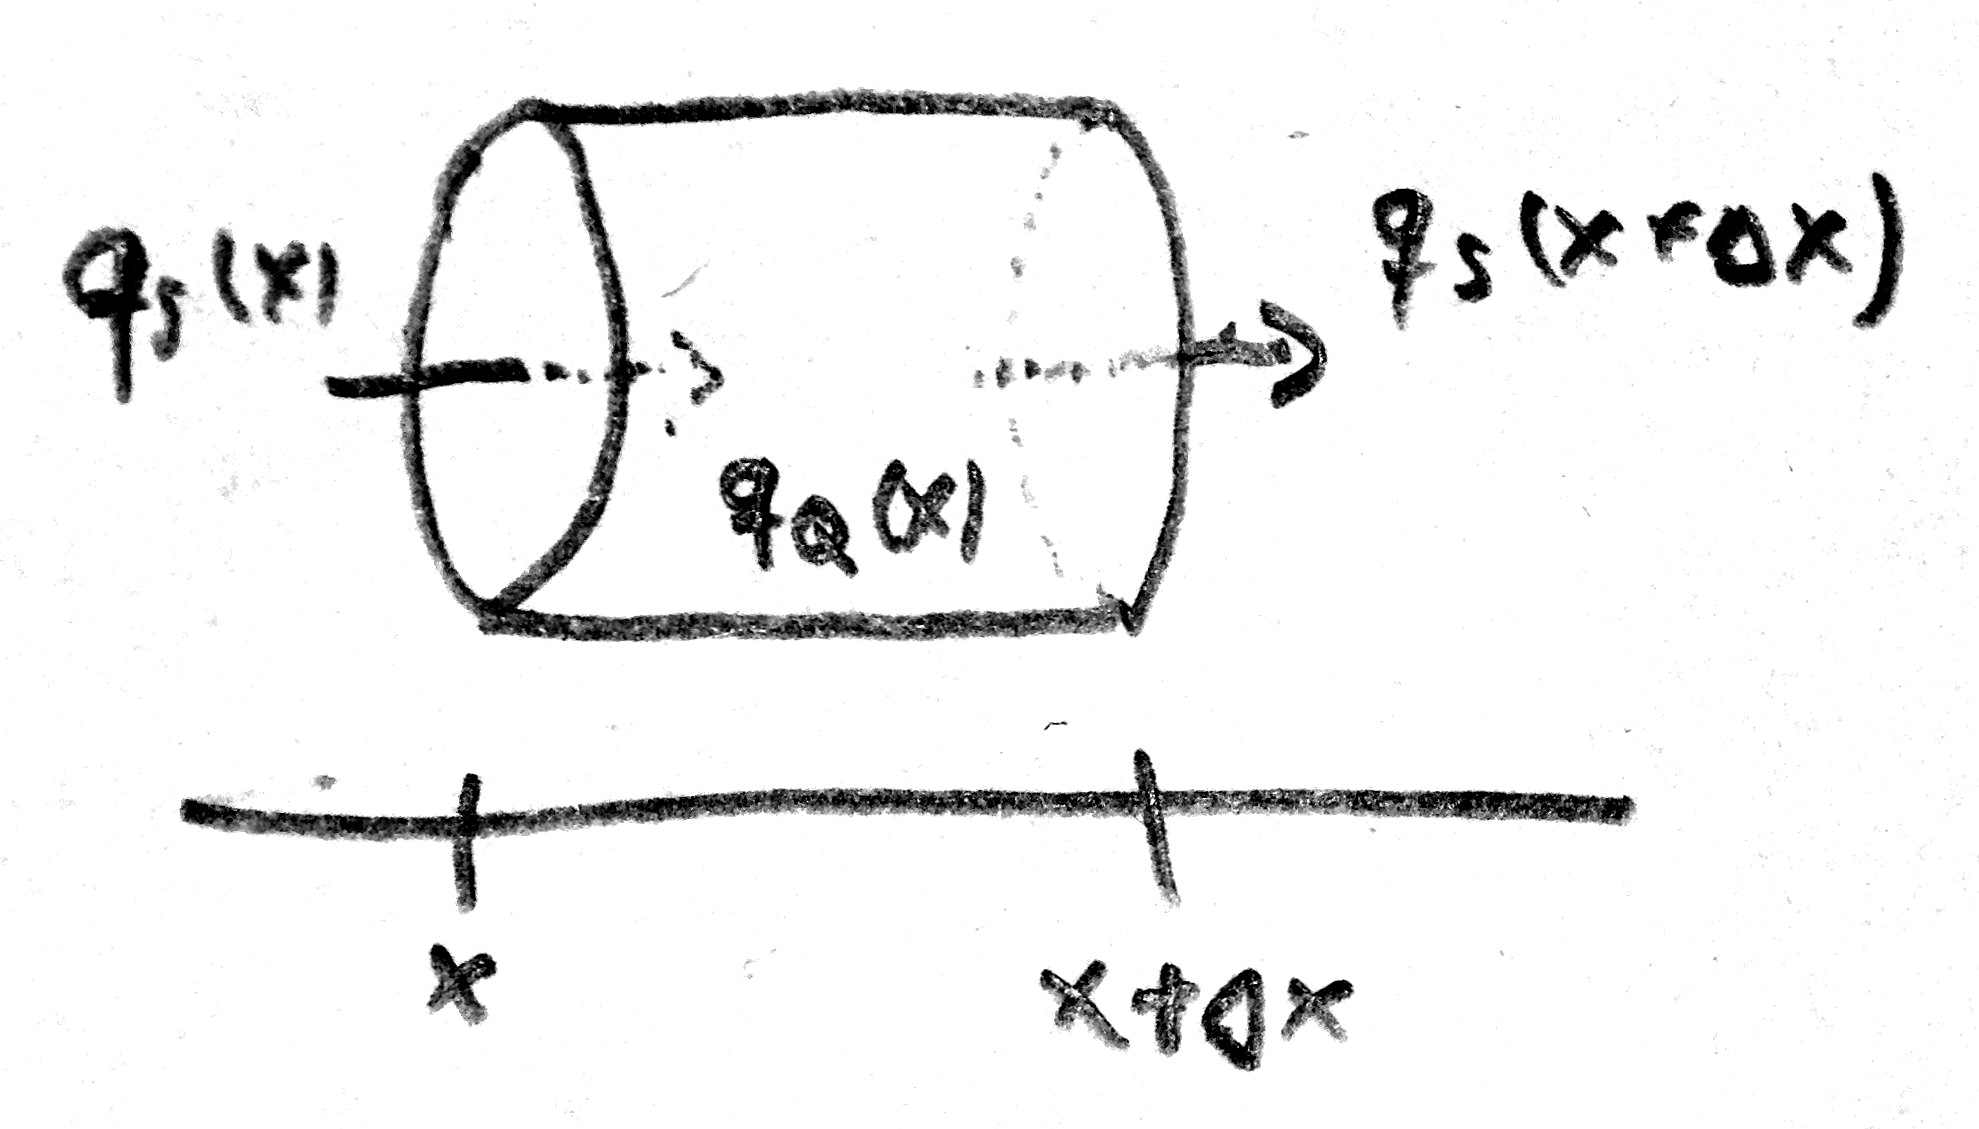 qs(x)
qs(x+Δx)
qQ(x)
x
x+Δx